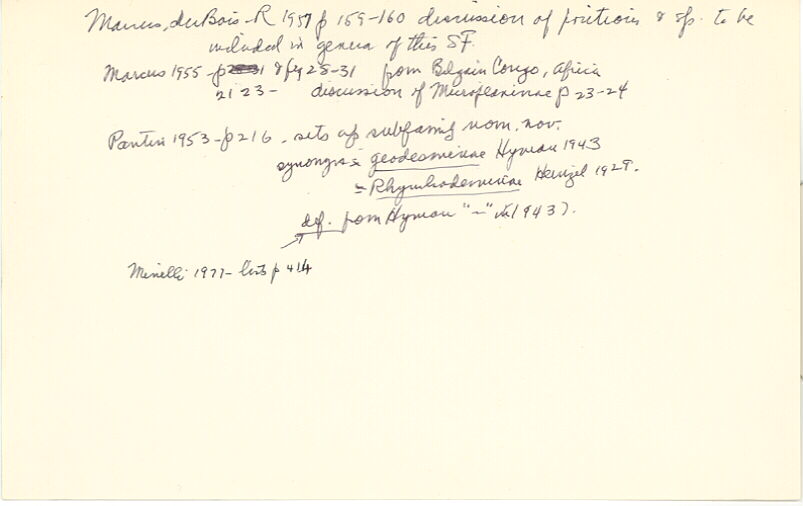 Marcus, du Bois-R 1957 p 159-160 discussion of positions & sps. to be
included in genera of this SF.
Marcus 1955 - p & fig 28-31 from Belgain Congo, Africa
21 23 - discussion of Microplaninae p 23-24
Pantin 1953 - p 216 - sets up subfamily nom. nov.
synonyms = geodesminae Hyman 1943
= Rhynchodeminae Heinzel 1929.
def. from Hyman "~" in 1943).
Minelli 1977 - lists p 414